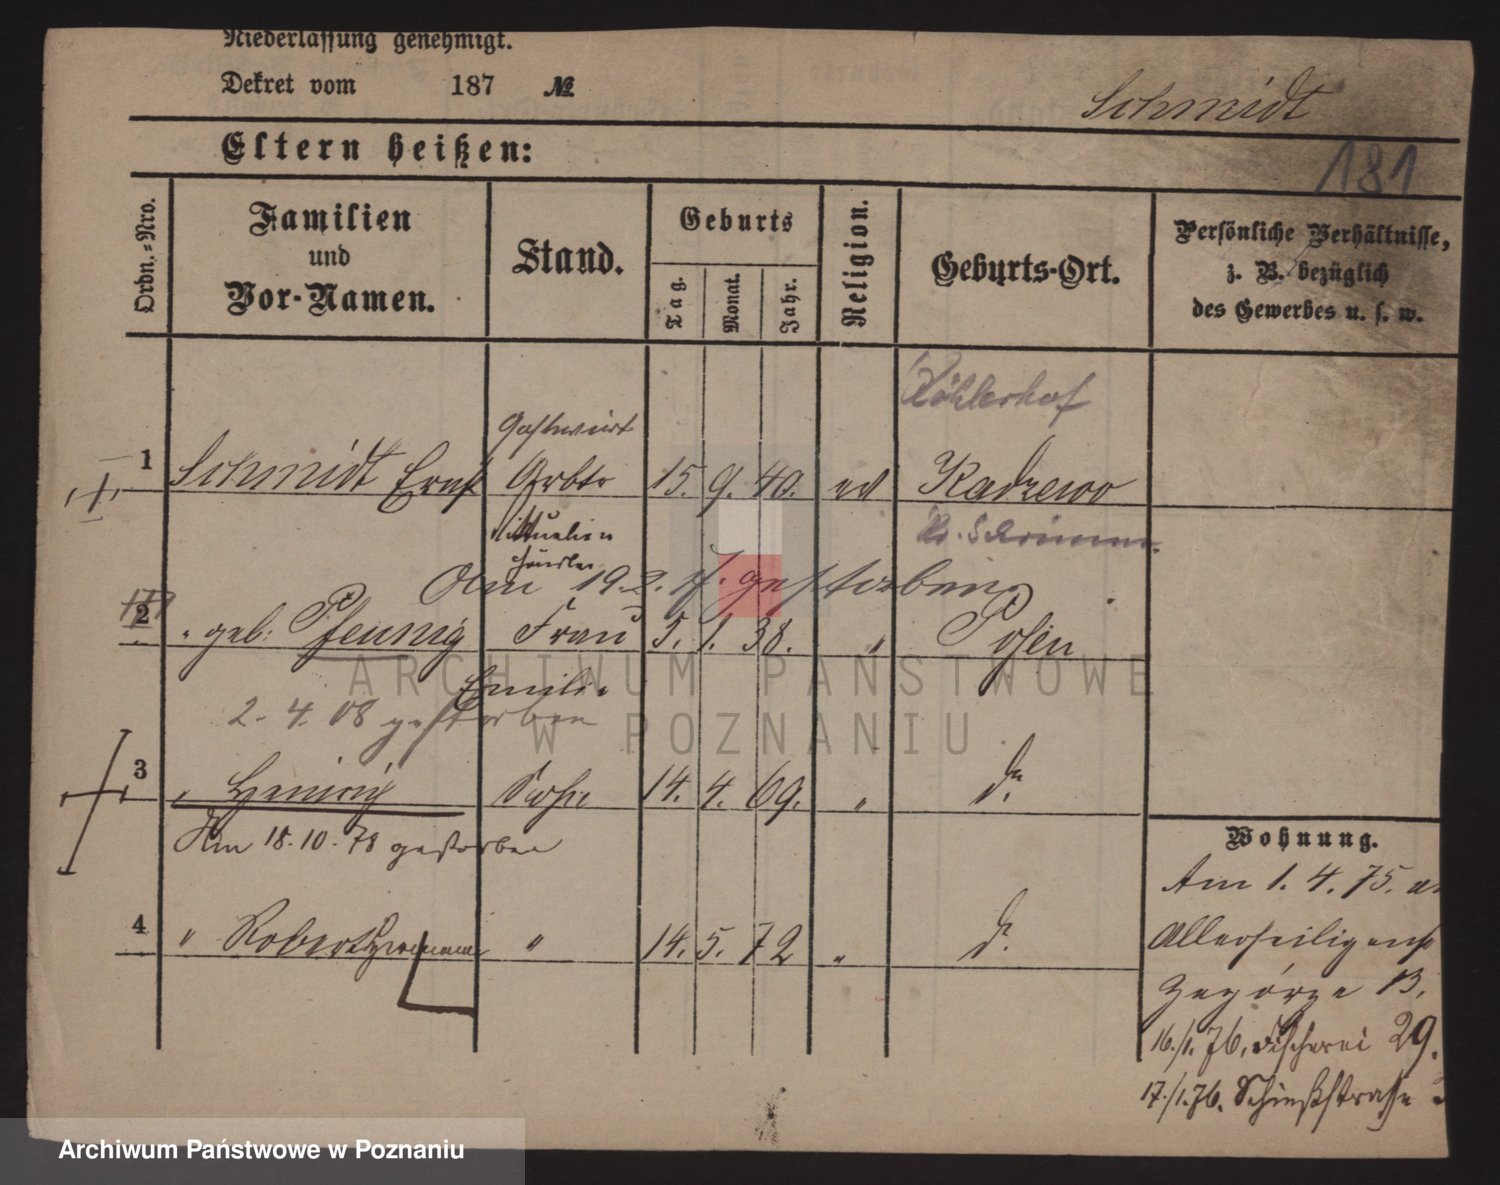 Niederlassung genehmigt.
Dekret vom 187 №
Schmidt
Eltern heißen:
181
Ordn.-Nro.
Familien
und
Vor-Namen.
Stand.
Geburts
Tag.
Monat.
Jahr.
Religion.
Geburts-Ort.
Persönliche Verhältnisse,
z. B. bezüglich
des Gewerbes u. s. w.
Köhlerhof
Gastwirt
1 Schmidt Ernst Arbtr 15. 9. 40. ev Radzewo
Viktualien
händler
Kr. Schrimm
Am 19.2. gestorben
2 " geb: Pfennig Frau 5. 1. 38. " Posen
Emilie
2. 4. 08 gestorben
3 " Heinrich Sohn 14. 4. 69. " do.
Am 18.10.78 gestorben
4 " Robert Hermann " 14. 5. 72 " do.
Wohnung.
Am 1. 4. 75. a
Allerheiligenst
Zagórze 13.
16./1. 76. Fischerei 29.
17./1. 76. Schießstrasse
ARCHIWUM PAŃSTWOWE
W POZNANIU
Archiwum Państwowe w Poznaniu